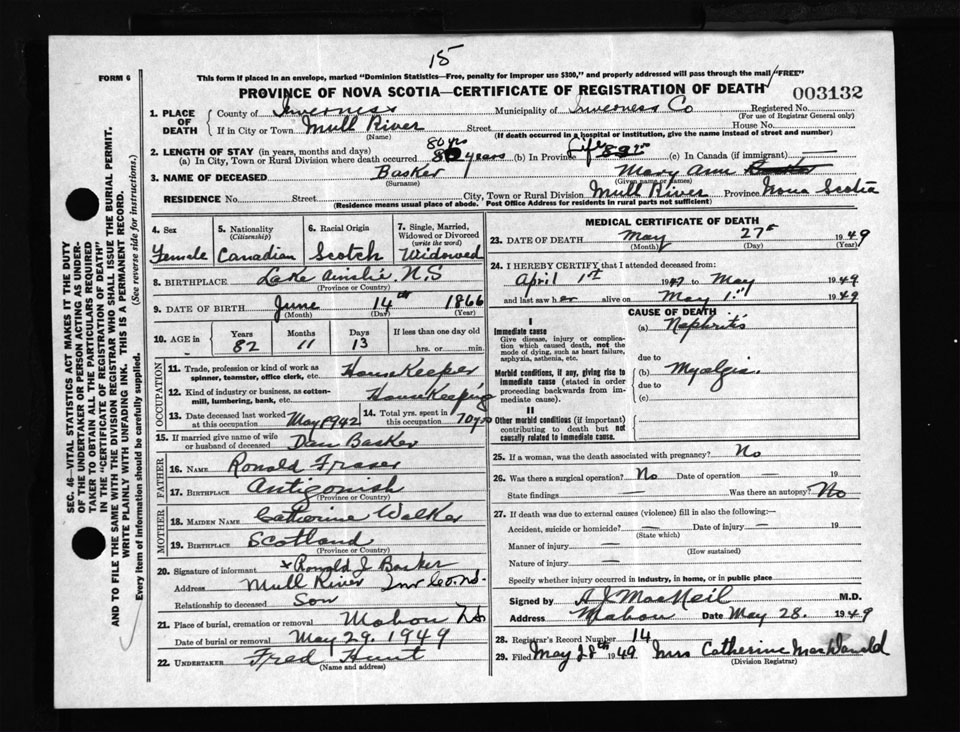 15
FORM 6
This form if placed in an envelope, marked "Dominion Statistics—Free, penalty for improper use $300," and properly addressed will pass through the mail "FREE"
PROVINCE OF NOVA SCOTIA—CERTIFICATE OF REGISTRATION OF DEATH
003132
1. PLACE OF DEATH
County of Inverness Municipality of Inverness Co Registered No.
(For use of Registrar General only)
If in City or Town Mull River Street House No.
(Name) (If death occurred in a hospital or institution, give the name instead of street and number)
2. LENGTH OF STAY (in years, months and days)
(a) In City, Town or Rural Division where death occurred 80 yrs years (b) In Province Life (c) In Canada (if immigrant) —
3. NAME OF DECEASED Basker Mary Ann
(Surname) (Given name or names)
RESIDENCE No. Street City, Town or Rural Division Mull River Province Nova Scotia
(Residence means usual place of abode. Post Office Address for residents in rural parts not sufficient)
4. Sex Female
5. Nationality (Citizenship) Canadian
6. Racial Origin Scotch
7. Single, Married, Widowed or Divorced (write the word) Widowed
8. BIRTHPLACE Lake Ainslie N.S
(Province or Country)
9. DATE OF BIRTH June 14th 1866
(Month) (Day) (Year)
10. AGE in Years 82 Months 11 Days 13 If less than one day old
hrs. or min.
OCCUPATION
11. Trade, profession or kind of work as spinner, teamster, office clerk, etc. HouseKeeper
12. Kind of industry or business, as cotton-mill, lumbering, bank, etc. HouseKeeping
13. Date deceased last worked at this occupation May 1942
14. Total yrs. spent in this occupation 70 yrs
15. If married give name of wife or husband of deceased Dan Basker
FATHER
16. NAME Ronald Fraser
17. BIRTHPLACE Antigonish
(Province or Country)
MOTHER
18. MAIDEN NAME Catherine Walker
19. BIRTHPLACE Scotland
(Province or Country)
20. Signature of informant x Ronald J Basker
Address Mull River Inv Co. N.S.
Relationship to deceased Son
21. Place of burial, cremation or removal Mabou N.S.
Date of burial or removal May 29. 1949
22. UNDERTAKER Fred Hunt
(Name and address)
MEDICAL CERTIFICATE OF DEATH
23. DATE OF DEATH May 27th 1949
(Month) (Day) (Year)
24. I HEREBY CERTIFY that I attended deceased from:
April 1st 1947 to May 1949
and last saw her alive on May 1st 1949
CAUSE OF DEATH
I
Immediate cause
Give disease, injury or complication which caused death, not the mode of dying, such as heart failure, asphyxia, asthenia, etc.
(a) Nephritis
due to
Morbid conditions, if any, giving rise to immediate cause (stated in order proceeding backwards from immediate cause).
(b) Myalgia.
due to
(c)
II
Other morbid conditions (if important) contributing to death but not causally related to immediate cause.
25. If a woman, was the death associated with pregnancy? No
26. Was there a surgical operation? No Date of operation — 19
State findings — Was there an autopsy? No
27. If death was due to external causes (violence) fill in also the following:-
Accident, suicide or homicide? — Date of injury — 19
(State which)
Manner of injury —
(How sustained)
Nature of injury —
Specify whether injury occurred in industry, in home, or in public place
Signed by A J MacNeil M.D.
Address Mabou Date May 28. 1949
28. Registrar's Record Number 14
29. Filed May 28th 1949 Mrs Catherine MacDonald
(Division Registrar)
SEC. 46—VITAL STATISTICS ACT MAKES IT THE DUTY
OF THE UNDERTAKER OR PERSON ACTING AS UNDER-
TAKER TO OBTAIN ALL THE PARTICULARS REQUIRED
IN THE "CERTIFICATE OF REGISTRATION OF DEATH"
AND TO FILE THE SAME WITH THE DIVISION REGISTRAR WHO SHALL ISSUE THE BURIAL PERMIT.
WRITE PLAINLY WITH UNFADING INK. THIS IS A PERMANENT RECORD.
Every item of information should be carefully supplied. (See reverse side for instructions.)